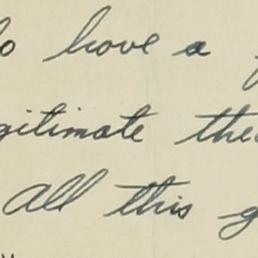 to have a
gitimate the
All this g